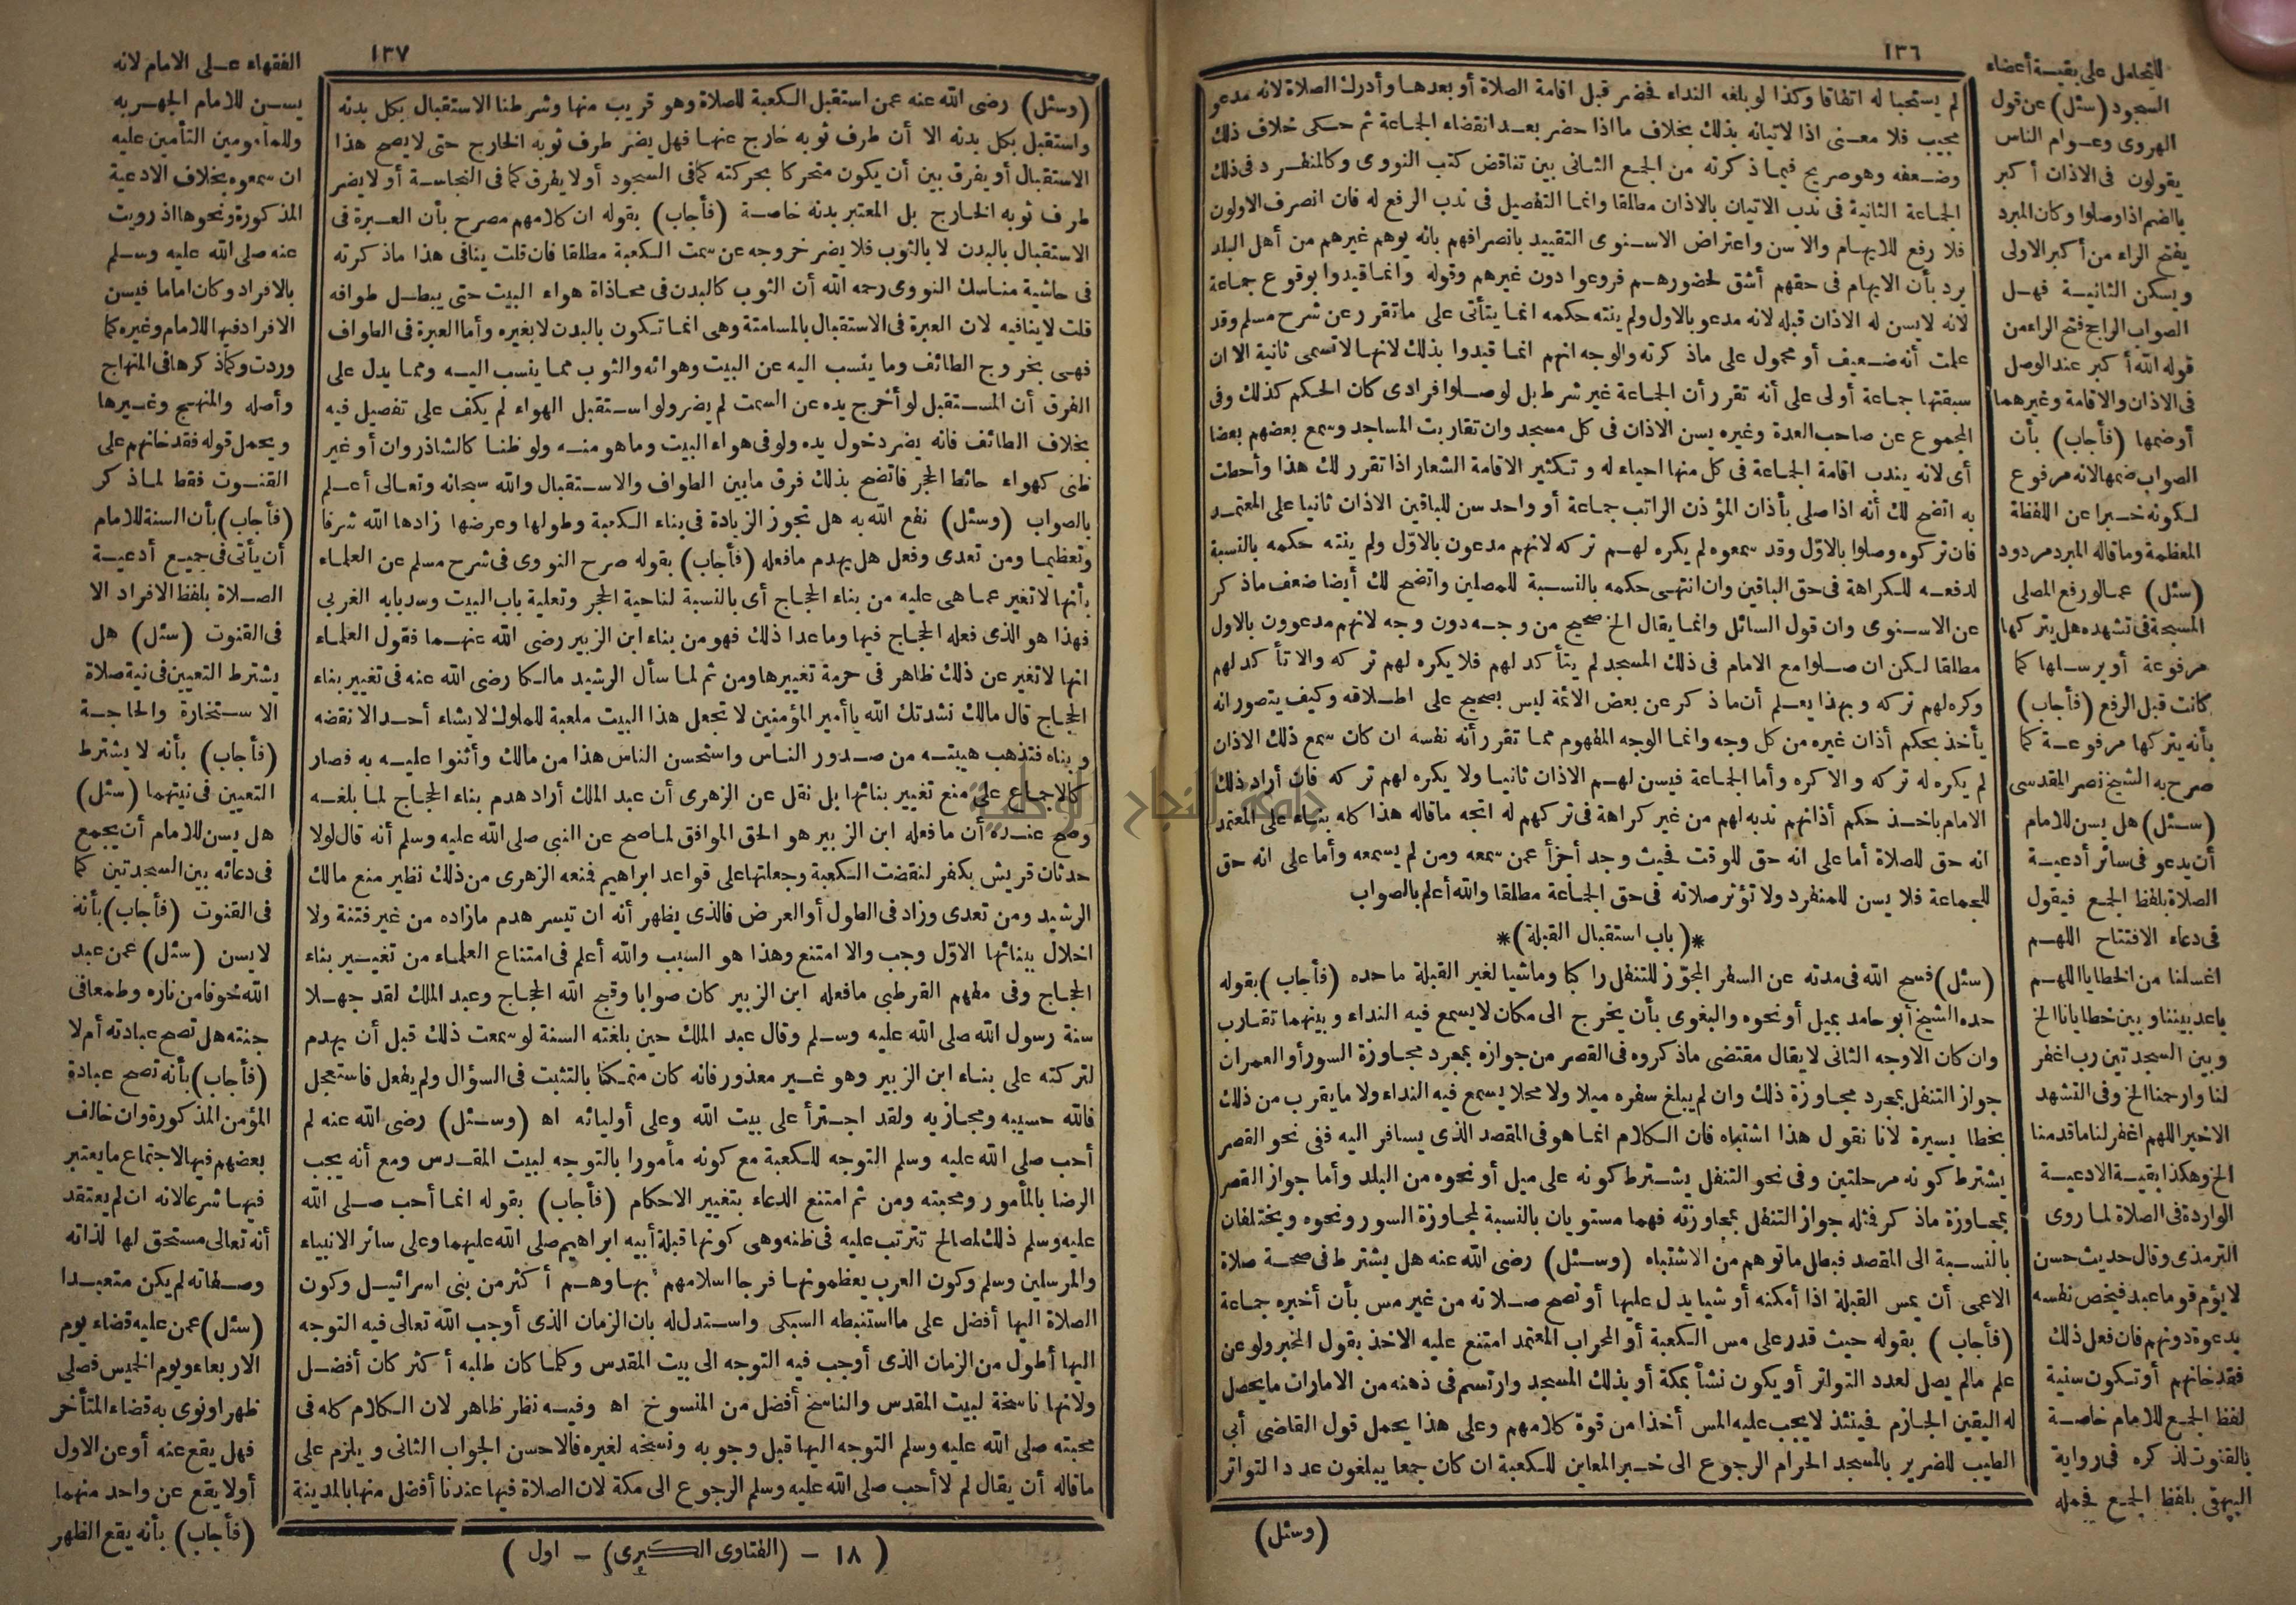 ١٣٦
لم يستحبا له اتفاقا وكذا لو بلغه النداء فحضر قبل اقامة الصلاة أو بعدها وأدرك الصلاة لانه مدعو
مجيب فلا معنى اذا لاتيانه بذلك بخلاف ما اذا حضر بعد انقضاء الجماعة ثم حكى خلاف ذلك
وضعفه وهو صريح فيما ذكرته من الجمع الثانى بين تناقض كتب النووى وكالمنفرد فى ذلك
الجماعة الثانية فى ندب الاتيان بالاذان مطلقا وانما التفصيل فى ندب الرفع له فان انصرف الاولون
فلا رفع للايهام والا سن واعتراض الاسنوى التقييد بانصرافهم بانه يوهم غيرهم من أهل البلد
يرد بأن الايهام فى حقهم أشق لحضورهم فروعوا دون غيرهم وقوله وانما قيدوا بوقوع جماعة
لانه لا يسن له الاذان قبله لانه مدعو بالاول ولم ينته حكمه انما يتأتى على ما تقرر عن شرح مسلم وقد
علمت أنه ضعيف أو محمول على ماذكرته والوجه انهم انما قيدوا بذلك لانها لا تسمى ثانية الا ان
سبقتها جماعة أولى على أنه تقرر أن الجماعة غير شرط بل لو صلوا فرادى كان الحكم كذلك وفى
المجموع عن صاحب العدة وغيره يسن الاذان فى كل مسجد وان تقاربت المساجد وسمع بعضهم بعضا
أى لانه يندب اقامة الجماعة فى كل منها احياء له وتكثير الاقامة الشعار اذا تقرر لك هذا وأحطت
به اتضح لك أنه اذا صلى بأذان المؤذن الراتب جماعة أو واحد سن للباقين الاذان ثانيا على المعتمد
فان تركوه وصلوا بالاوّل وقد سمعوه لم يكره لهم تركه لانهم مدعون بالاوّل ولم ينته حكمه بالنسبة
لدفعه للكراهة فى حق الباقين وان انتهى حكمه بالنسبة للمصلين واتضح لك أيضا ضعف ماذكر
عن الاسنوى وان قول السائل وانما يقال الخ صحيح من وجه دون وجه لانهم مدعوون بالاول
مطلقا لكن ان صلوا مع الامام فى ذلك المسجد لم يتأكد لهم فلا يكره لهم تركه والا تأكد لهم
وكره لهم تركه وبهذا يعلم أن ماذكر عن بعض الائمة ليس بصحيح على اطلاقه وكيف يتصور انه
يأخذ بحكم أذان غيره من كل وجه وانما الوجه المفهوم مما تقرر أنه نفسه ان كان سمع ذلك الاذان
لم يكره له تركه والا كره وأما الجماعة فيسن لهم الاذان ثانيا ولا يكره لهم تركه فان أراد ذلك
الامام باخذ حكم أذانهم ندبه لهم من غير كراهة فى تركهم له اتجه ماقاله هذا كله بناء على المعتمد
انه حق للصلاة أما على انه حق للوقت فحيث وجد أجزأ عمن سمعه ومن لم يسمعه وأما على انه حق
للجماعة فلا يسن للمنفرد ولا تؤثر صلاته فى حق الجماعة مطلقا والله أعلم بالصواب
*(باب استقبال القبلة)*
(سئل) فسح الله فى مدته عن السفر المجوّز للتنفل راكبا وماشيا لغير القبلة ماحده (فأجاب) بقوله
حده الشيخ أبو حامد بميل أو نحوه والبغوى بأن يخرج الى مكان لا يسمع فيه النداء وبينهما تقارب
وان كان الاوجه الثانى لا يقال مقتضى ماذكروه فى القصر من جوازه بمجرد مجاوزة السور أو العمران
جواز التنفل بمجرد مجاوزة ذلك وان لم يبلغ سفره ميلا ولا محلا يسمع فيه النداء ولا ما يقرب من ذلك
بخطا يسيرة لانا نقول هذا اشتباه فان الكلام انما هو فى المقصد الذى يسافر اليه ففى نحو القصر
يشترط كونه مرحلتين وفى نحو التنفل يشترط كونه على ميل أو نحوه من البلد وأما جواز القصر
بمجاوزة ماذكر فمثله جواز التنفل بمجاوزته فهما مستويان بالنسبة لمجاوزة السور ونحوه ويختلفان
بالنسبة الى المقصد فبطل ماتوهم من الاشتباه (وسئل) رضى الله عنه هل يشترط فى صحة صلاة
الاعمى أن يمس القبلة اذا أمكنه أو شيا يدل عليها أو تصح صلاته من غير مس بأن أخبره جماعة
(فأجاب) بقوله حيث قدر على مس الكعبة أو المحراب المعتمد امتنع عليه الاخذ بقول المخبر ولو عن
علم مالم يصل لعدد التواتر أو يكون نشأ بمكة أو بذلك المسجد وارتسم فى ذهنه من الامارات ما يحصل
له اليقين الجازم فحينئذ لا يجب عليه المس أخذا من قوة كلامهم وعلى هذا يحمل قول القاضى أبى
الطيب للضرير بالمسجد الحرام الرجوع الى خبر المعاين للكعبة ان كان جمعا يبلغون عدد التواتر
(وسئل)
للتحامل على بقية أعضاء
السجود (سئل) عن قول
الهروى وعوام الناس
يقولون فى الاذان أكبر
بالضم اذا وصلوا وكان المبرد
يفتح الراء من أكبر الاولى
ويسكن الثانية فهل
الصواب الراجح فتح الراء من
قوله الله أكبر عند الوصل
فى الاذان والاقامة وغيرهما
أو ضمها (فأجاب) بأن
الصواب ضمها لانه مرفوع
لكونه خبرا عن اللفظة
المعظمة وماقاله المبرد مردود
(سئل) عما لو رفع المصلى
المسبحة فى تشهده هل يتركها
مرفوعة أو يرسلها كما
كانت قبل الرفع (فأجاب)
بأنه يتركها مرفوعة كما
صرح به الشيخ نصر المقدسى
(سئل) هل يسن للامام
أن يدعو فى سائر أدعية
الصلاة بلفظ الجمع فيقول
فى دعاء الافتتاح اللهم
اغسلنا من الخطايا اللهم
باعد بيننا وبين خطايانا الخ
وبين السجدتين رب اغفر
لنا وارحمنا الخ وفى التشهد
الاخير اللهم اغفر لنا ماقدمنا
الخ وهكذا بقية الادعية
الواردة فى الصلاة لما روى
الترمذى وقال حديث حسن
لا يؤم قوما عبد فيخص نفسه
بدعوة دونهم فان فعل ذلك
فقد خانهم أو تكون سنية
لفظ الجمع للامام خاصة
بالقنوت لذكره فى رواية
البيهقى بلفظ الجمع فحمله
١٣٧
(وسئل) رضى الله عنه عمن استقبل الكعبة للصلاة وهو قريب منها وشرطنا الاستقبال بكل بدنه
واستقبل بكل بدنه الا أن طرف ثوبه خارج عنها فهل يضر طرف ثوبه الخارج حتى لا يصح هذا
الاستقبال أو يفرق بين أن يكون متحركا بحركته كما فى السجود أو لا يفرق كما فى النجاسة أو لا يضر
طرف ثوبه الخارج بل المعتبر بدنه خاصة (فأجاب) بقوله ان كلامهم مصرح بأن العبرة فى
الاستقبال بالبدن لا بالثوب فلا يضر خروجه عن سمت الكعبة مطلقا فان قلت ينافى هذا ماذكرته
فى حاشية مناسك النووى رحمه الله أن الثوب كالبدن فى محاذاة هواء البيت حتى يبطل طوافه
قلت لا ينافيه لان العبرة فى الاستقبال بالمسامتة وهى انما تكون بالبدن لا بغيره وأما العبرة فى الطواف
فهى بخروج الطائف وما ينسب اليه عن البيت وهوائه والثوب مما ينسب اليه ومما يدل على
الفرق أن المستقبل لو أخرج يده عن السمت لم يضر ولو استقبل الهواء لم يكف على تفصيل فيه
بخلاف الطائف فانه يضر دخول يده ولو فى هواء البيت وما هو منه ولو ظنا كالشاذروان أو غير
ظنى كهواء حائط الحجر فاتضح بذلك فرق مابين الطواف والاستقبال والله سبحانه وتعالى أعلم
بالصواب (وسئل) نفع الله به هل تجوز الزيادة فى بناء الكعبة وطولها وعرضها زادها الله شرفا
وتعظيما ومن تعدى وفعل هل يهدم مافعله (فأجاب) بقوله صرح النووى فى شرح مسلم عن العلماء
بأنها لا تغير عما هى عليه من بناء الحجاج أى بالنسبة لناحية الحجر وتعلية باب البيت وسد بابه الغربى
فهذا هو الذى فعله الحجاج فيها وماعدا ذلك فهو من بناء ابن الزبير رضى الله عنهما فقول العلماء
انها لا تغير عن ذلك ظاهر فى حرمة تغييرها ومن ثم لما سأل الرشيد مالكا رضى الله عنه فى تغيير بناء
الحجاج قال مالك نشدتك الله ياأمير المؤمنين لا تجعل هذا البيت ملعبة للملوك لا يشاء أحد الا نقضه
وبناه فتذهب هيبته من صدور الناس واستحسن الناس هذا من مالك وأثنوا عليه به فصار
كالاجماع على منع تغيير بنائها بل نقل عن الزهرى أن عبد الملك أراد هدم بناء الحجاج لما بلغه
وصح عنده أن مافعله ابن الزبير هو الحق الموافق لما صح عن النبى صلى الله عليه وسلم أنه قال لولا
حدثان قريش بكفر لنقضت الكعبة وجعلتها على قواعد ابراهيم فمنعه الزهرى من ذلك نظير منع مالك
الرشيد ومن تعدى وزاد فى الطول أو العرض فالذى يظهر أنه ان تيسر هدم مازاده من غير فتنة ولا
اخلال ببنائها الاوّل وجب والا امتنع وهذا هو السبب والله أعلم فى امتناع العلماء من تغيير بناء
الحجاج وفى مفهم القرطبى مافعله ابن الزبير كان صوابا وقبح الله الحجاج وعبد الملك لقد جهلا
سنة رسول الله صلى الله عليه وسلم وقال عبد الملك حين بلغته السنة لو سمعت ذلك قبل أن يهدم
لتركته على بناء ابن الزبير وهو غير معذور فانه كان متمكنا بالتثبت فى السؤال ولم يفعل فاستعجل
فالله حسيبه ومجازيه ولقد اجترأ على بيت الله وعلى أوليائه اه (وسئل) رضى الله عنه لم
أحب صلى الله عليه وسلم التوجه للكعبة مع كونه مأمورا بالتوجه لبيت المقدس ومع أنه يجب
الرضا بالمأمور ومحبته ومن ثم امتنع الدعاء بتغيير الاحكام (فأجاب) بقوله انما أحب صلى الله
عليه وسلم ذلك لمصالح تترتب عليه فى ظنه وهى كونها قبلة أبيه ابراهيم صلى الله عليهما وعلى سائر الانبياء
والمرسلين وسلم وكون العرب يعظمونها فرجا اسلامهم بها وهم أكثر من بنى اسرائيل وكون
الصلاة اليها أفضل على مااستنبطه السبكى واستدل له بان الزمان الذى أوجب الله تعالى فيه التوجه
اليها أطول من الزمان الذى أوجب فيه التوجه الى بيت المقدس وكلما كان طلبه أكثر كان أفضل
ولانها ناسخة لبيت المقدس والناسخ أفضل من المنسوخ اه وفيه نظر ظاهر لان الكلام كله فى
محبته صلى الله عليه وسلم التوجه اليها قبل وجوبه ونسخه لغيره فالاحسن الجواب الثانى ويلزم على
ماقاله أن يقال لم لا أحب صلى الله عليه وسلم الرجوع الى مكة لان الصلاة فيها عندنا أفضل منها بالمدينة
(١٨ - (الفتاوى الكبرى) - اول)
الفقهاء على الامام لانه
يسن للامام الجهر به
وللمأمومين التأمين عليه
ان سمعوه بخلاف الادعية
المذكورة ونحوها اذ رويت
عنه صلى الله عليه وسلم
بالافراد وكان اماما فيسن
الافراد فيها للامام وغيره كما
وردت وكما ذكرها فى المنهاج
وأصله والمنهج وغيرها
ويحمل قوله فقد خانهم على
القنوت فقط لما ذكر
(فأجاب) بأن السنة للامام
أن يأتى فى جميع أدعية
الصلاة بلفظ الافراد الا
فى القنوت (سئل) هل
يشترط التعيين فى نية صلاة
الاستخارة والحاجة
(فأجاب) بأنه لا يشترط
التعيين فى نيتهما (سئل)
هل يسن للامام أن يجمع
فى دعائه بين السجدتين كما
فى القنوت (فأجاب) بأنه
لا يسن (سئل) عمن عبد
الله خوفا من ناره وطمعا فى
جنته هل تصح عبادته أم لا
(فأجاب) بأنه تصح عبادة
المؤمن المذكورة وان خالف
بعضهم فيها لاجتماع مايعتبر
فيها شرعا لانه ان لم يعتقد
أنه تعالى مستحق لها لذاته
وصفاته لم يكن متعبدا
(سئل) عمن عليه قضاء يوم
الاربعاء ويوم الخميس فصلى
ظهرا ونوى به قضاء المتأخر
فهل يقع عنه أو عن الاول
أو لا يقع عن واحد منهما
(فأجاب) بأنه يقع الظهر